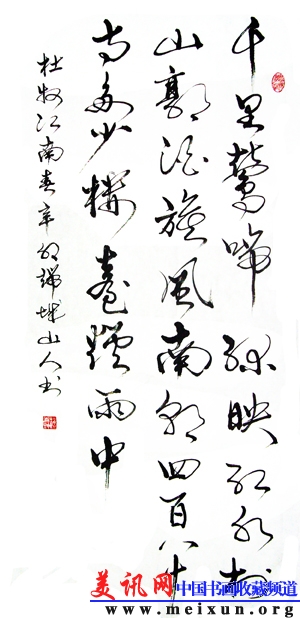 千里鶯啼綠映红水村
山郭酒旗風南朝四百八十
寺多少樓臺煙雨中
杜牧江南春辛卯端城山人书
美讯网 中国书画收藏频道
www.meixun.org